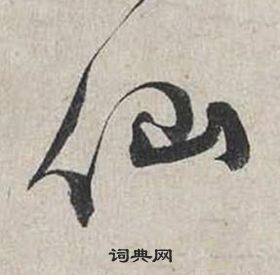 仙
词典网